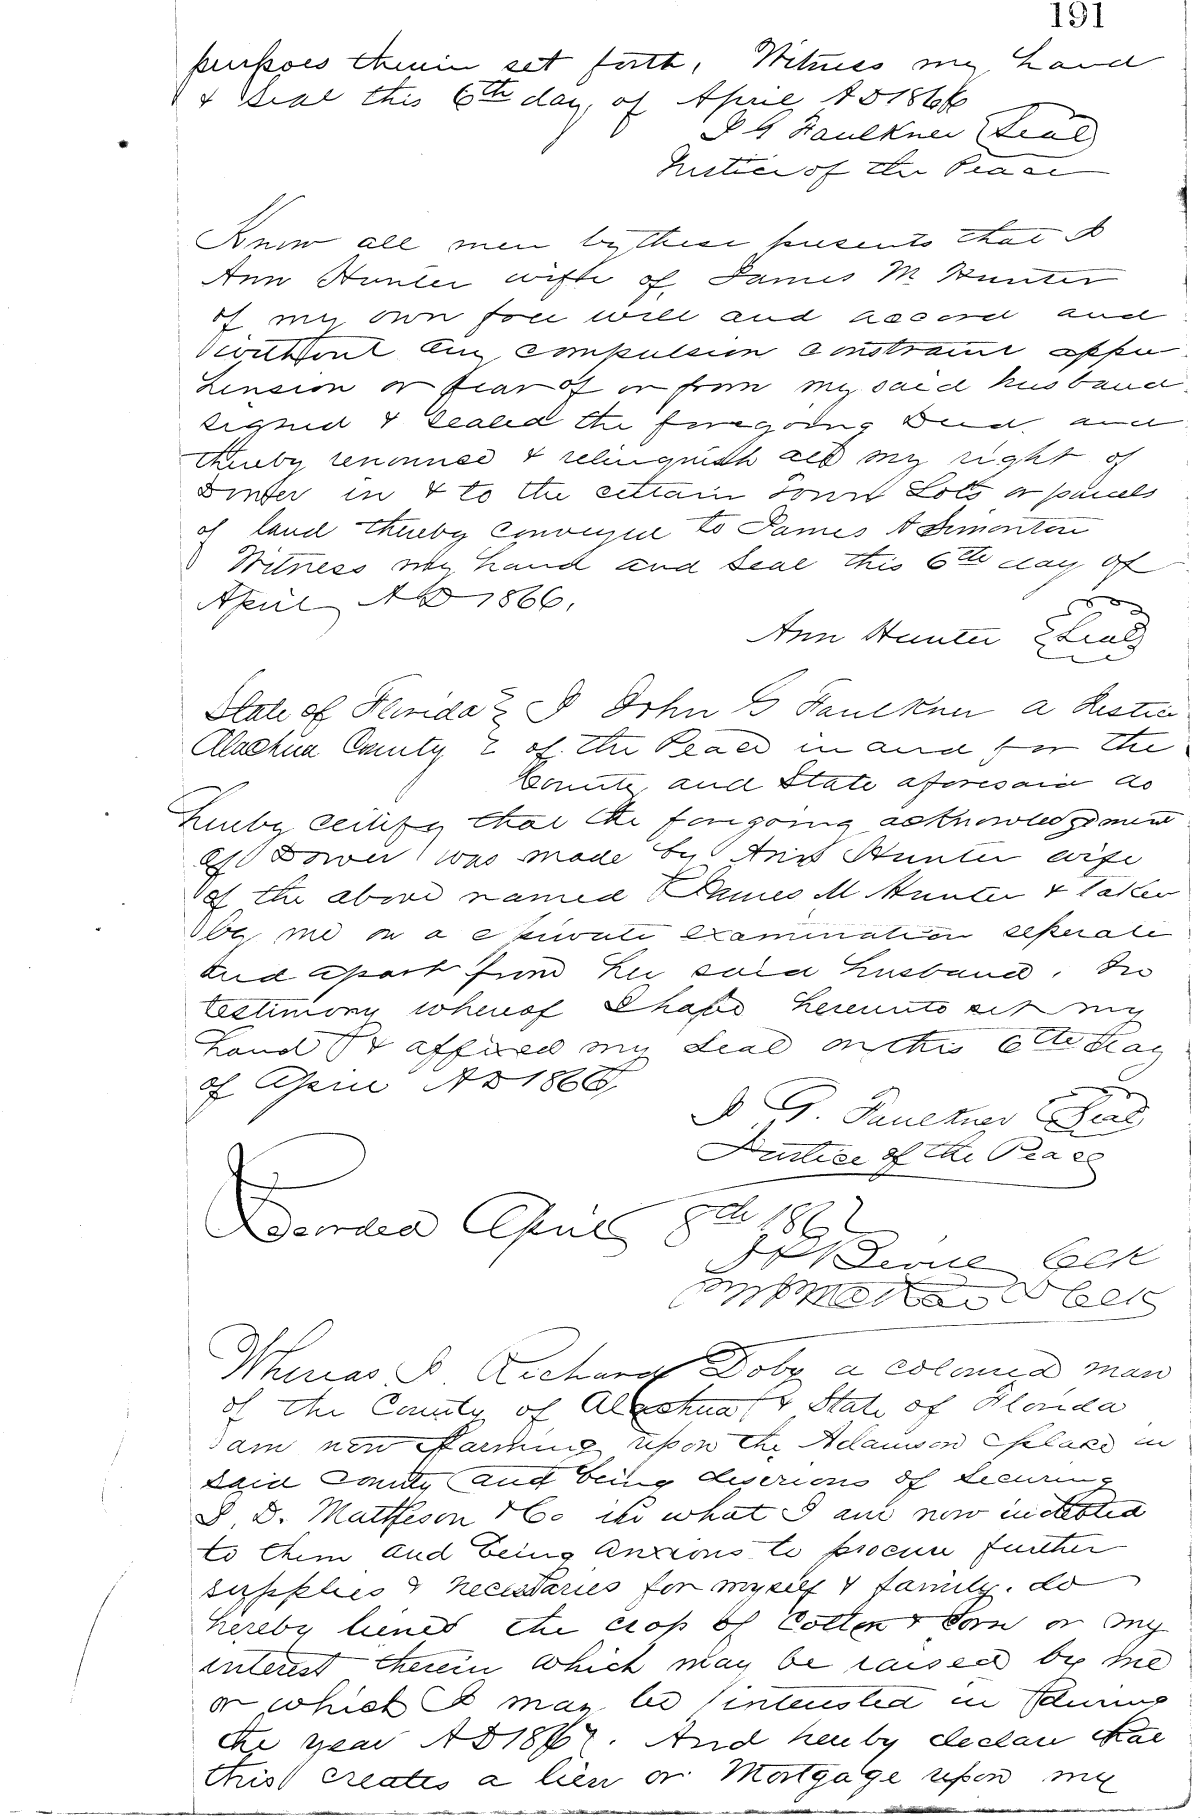 191
purposes therein set forth, Witness my hand
& Seal this 6th day, of April AD 1866
J G Faulkner Seal
Justice of the Peace
Know all men by these presents that I
Ann Hunter wife of James M Hunter
of my own free will and accord and
without any compulsion constraint appre
hension or fear of or from my said husband
signed & sealed the foregoing Deed and
thereby renounce & relinquish all my right of
Dower in & to the certain Town Lots or parcels
of land thereby conveyed to James A Simonton
Witness my hand and Seal this 6th day of
April AD 1866.
Ann Hunter Seal
State of Florida } I John G Faulkner a Justice
Alachua County } of the Peace in and for the
County and State aforesaid do
hereby certify that the foregoing acknowledgement
of Dower was made by Ann Hunter wife
of the above named James M Hunter & taken
by me on a private examination seperate
and apart from her said husband. In
testimony whereof I have hereunto set my
hand & affixed my Seal on this 6th day
of April AD 1866
J G. Faulkner Seal
Justice of the Peace
Recorded April 8th 1867
Clk
Whereas I Richard Doby a colored man
of the County of Alachua & State of Florida
am now farming upon the Adamson place in
said County and being deserious of securing
J. D. Matheson & Co in what I am now indebted
to them and being anxious to procure further
supplies & necessaries for myself & family. do
hereby liened the crop of Cotton & Corn or my
interest therein which may be raised by me
or which I may be interested in during
the year AD 1867. And hereby declare that
this creates a lien or Mortgage upon my